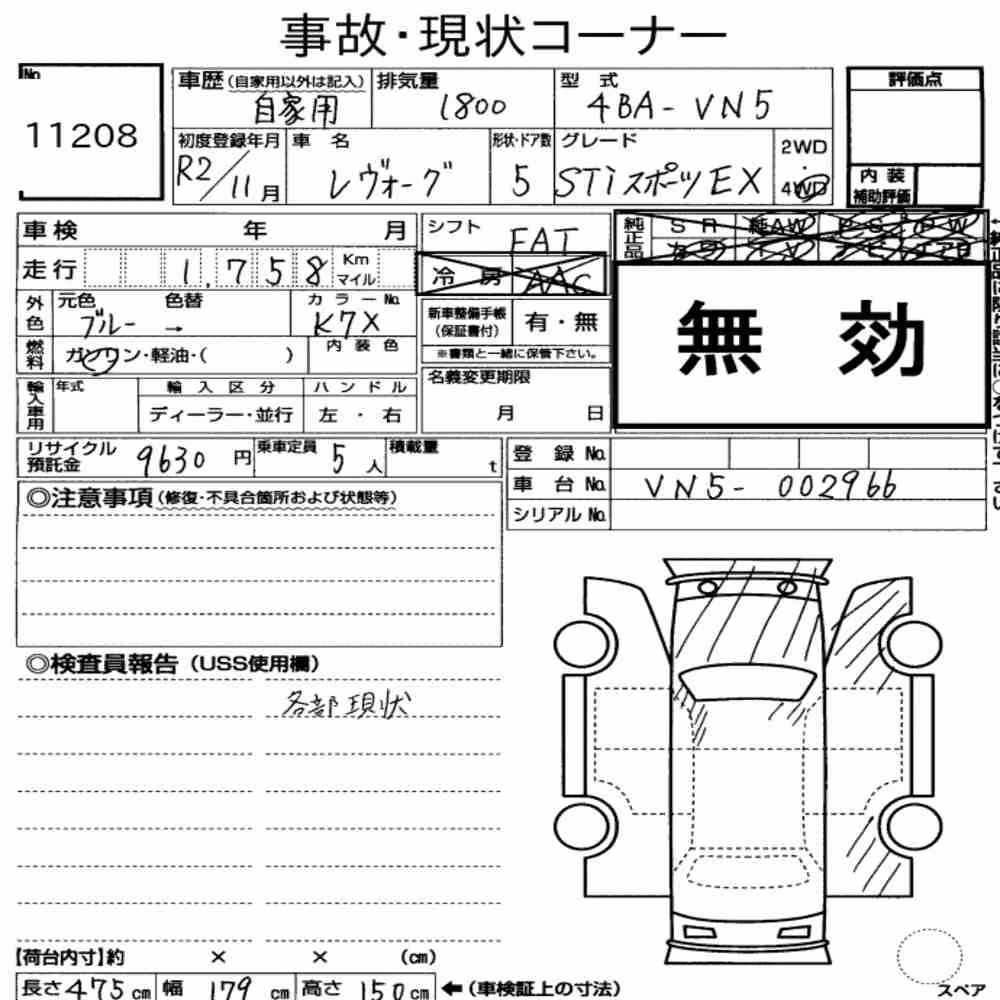 事故・現状コーナー
No 11208
車歴(自家用以外は記入) 自家用
排気量 1800
型式 4BA-VN5
評価点
初度登録年月 R2/11月
車名 レヴォーグ
形状・ドア数 5
グレード STiスポーツEX
2WD・4WD
内装補助評価
車検 年 月
シフト FAT
純正品 SR 純AW PS PW
カワ TV ナビ エアB
走行 1,758 Km マイル
冷房 AAC
外色 元色 ブルー → 色替
カラーNo. K7X
新車整備手帳(保証書付) 有・無
※書類と一緒に保管下さい。
無効
燃料 ガソリン・軽油・( )
内装色
輸入車用 年式
輸入区分 ディーラー・並行
ハンドル 左・右
名義変更期限 月 日
リサイクル預託金 9630円
乗車定員 5人
積載量 t
登録No.
車台No. VN5-002966
シリアルNo.
◎注意事項(修復・不具合箇所および状態等)
◎検査員報告(USS使用欄)
各部現状
【荷台内寸】約 × × (cm)
長さ475cm 幅179cm 高さ150cm ←(車検証上の寸法)
スペア